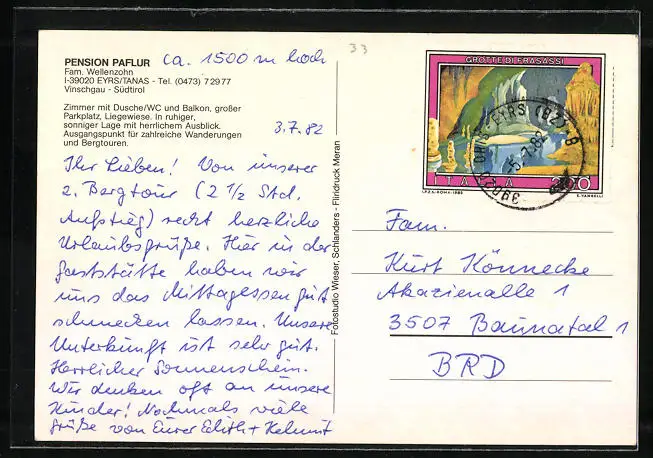 PENSION PAFLUR
Fam. Wellenzohn
I-39020 EYRS/TANAS - Tel. (0473) 72977
Vinschgau - Südtirol
ca. 1500 m hoch
33
Zimmer mit Dusche/WC und Balkon, großer
Parkplatz, Liegewiese. In ruhiger,
sonniger Lage mit herrlichem Ausblick.
Ausgangspunkt für zahlreiche Wanderungen
und Bergtouren.
3.7.82
Ihr Lieben! Von unserer
2. Bergtour (2 1/2 Std.
Aufstieg) recht herzliche
Urlaubsgrüße. Hier in der
Gaststätte haben wir
uns das Mittagessen gut
schmecken lassen. Unsere
Unterkunft ist sehr gut.
Herrlicher Sonnenschein.
Wir denken oft an unsere
Kinder! Nochmals viele
Grüße von Eurer Edith + Helmut
Fotostudio Wieser, Schlanders - Filridruck Meran
GROTTE DI FRASASSI
ITALIA 200
I.P.Z.S.-ROMA-1980
E. VANGELLI
EYRS (BZ)
5.7.82
8
Fam.
Kurt Könnecke
Akazienalle 1
3507 Baunatal 1
BRD